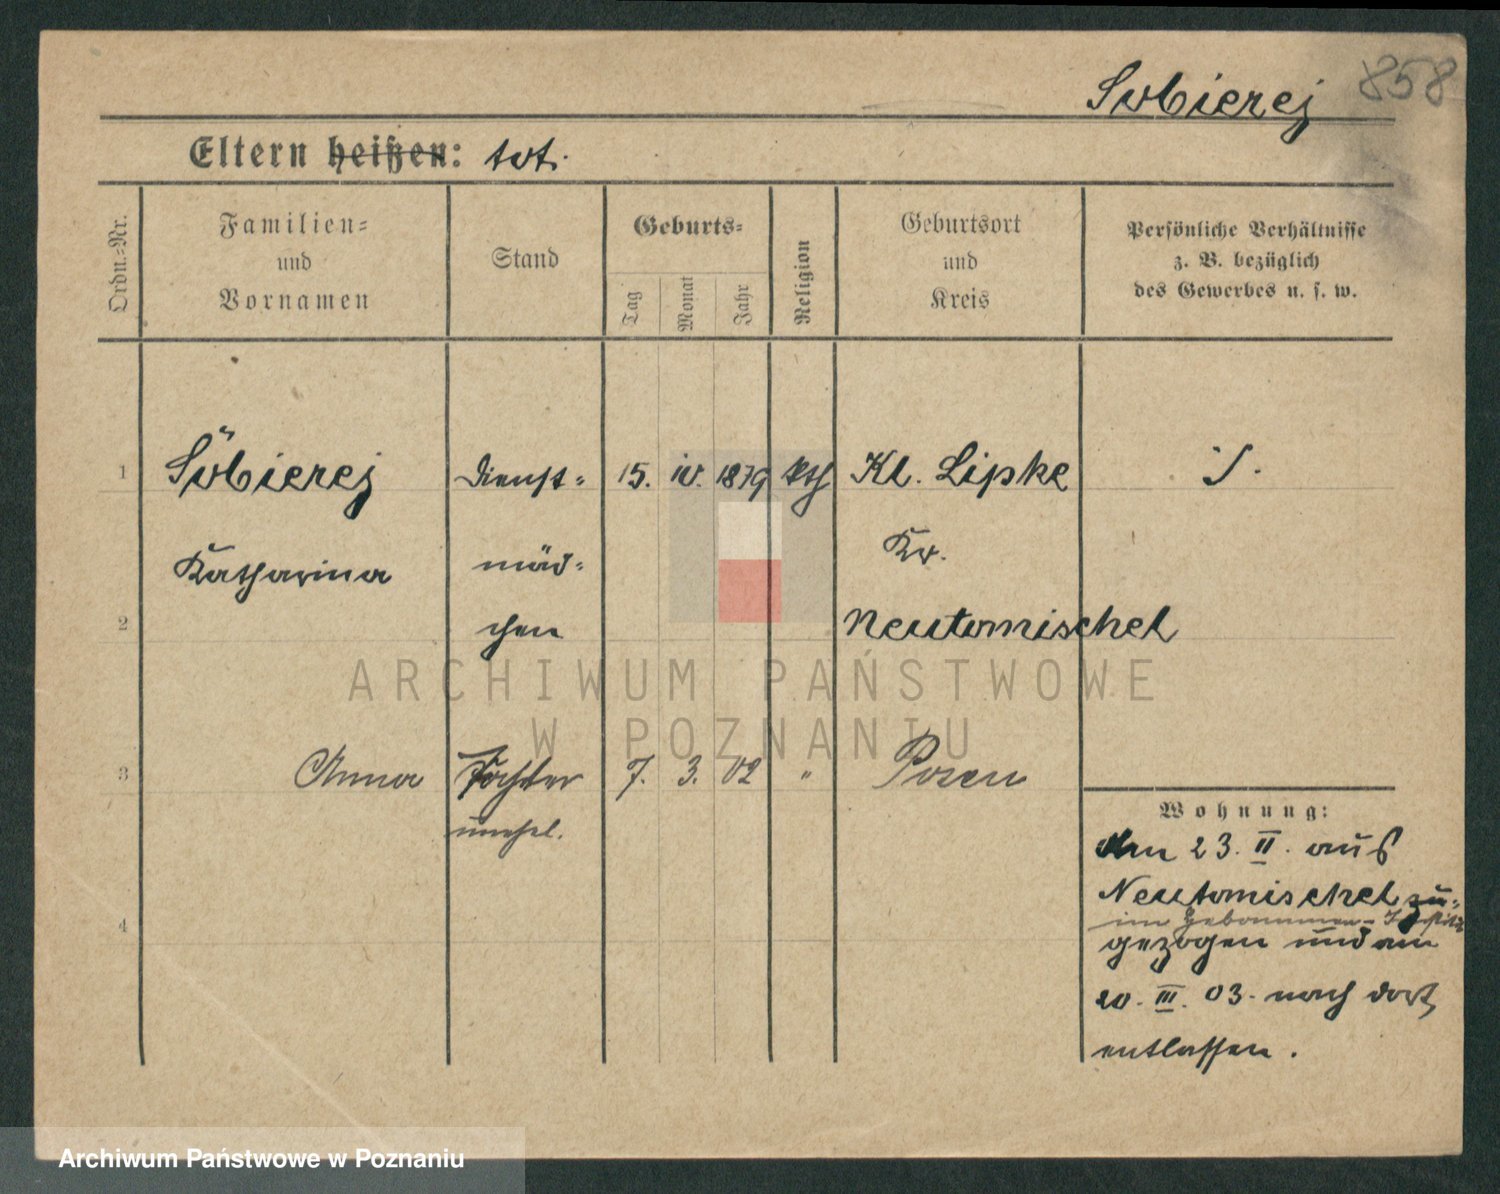 858
Sobierej
Eltern heißen: tot.
Ordn.=Nr.
Familien=
und
Vornamen
Stand
Geburts=
Tag
Monat
Jahr
Religion
Geburtsort
und
Kreis
Persönliche Verhältnisse
z. B. bezüglich
des Gewerbes u. s. w.
1
Sobierej
Dienst=
15. IV. 1879
kth
Kl. Lipke
Katharina
mäd=
Kr.
2
chen
Neutomischel
ARCHIWUM PAŃSTWOWE
W POZNANIU
3
Anna
Tochter
7. 3. 02
"
Posen
unehel.
Wohnung:
Am 23. II. aus
Neutomischel zu=
4
im Hebammen=Institut
gezogen und am
20. III. 03. nach dort
entlassen.
Archiwum Państwowe w Poznaniu